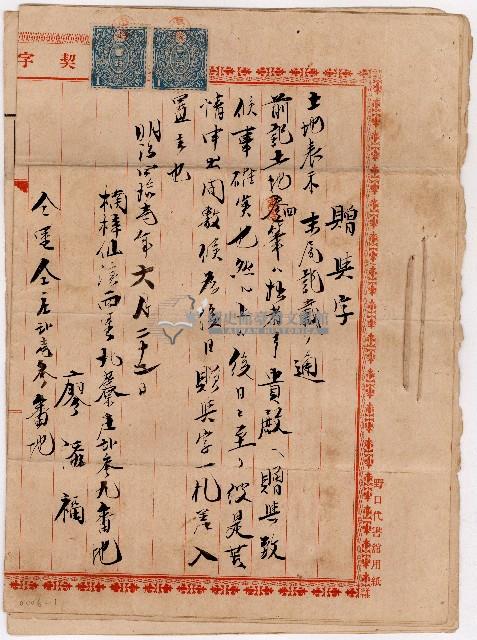 贈與字
土地表示 末尾記載ノ通
前記土地四筆ハ拙者ヨリ貴殿ヘ贈與致
候事確実也然ル上ハ後日ニ至リ彼是苦
情申出間敷候為後日贈與字一札差入
置候也
明治四拾壱年六月二十一日
楠梓仙溪西里
番地
廖添福
仝里仝庄
番地
契字
野口代書館用紙
0006-1